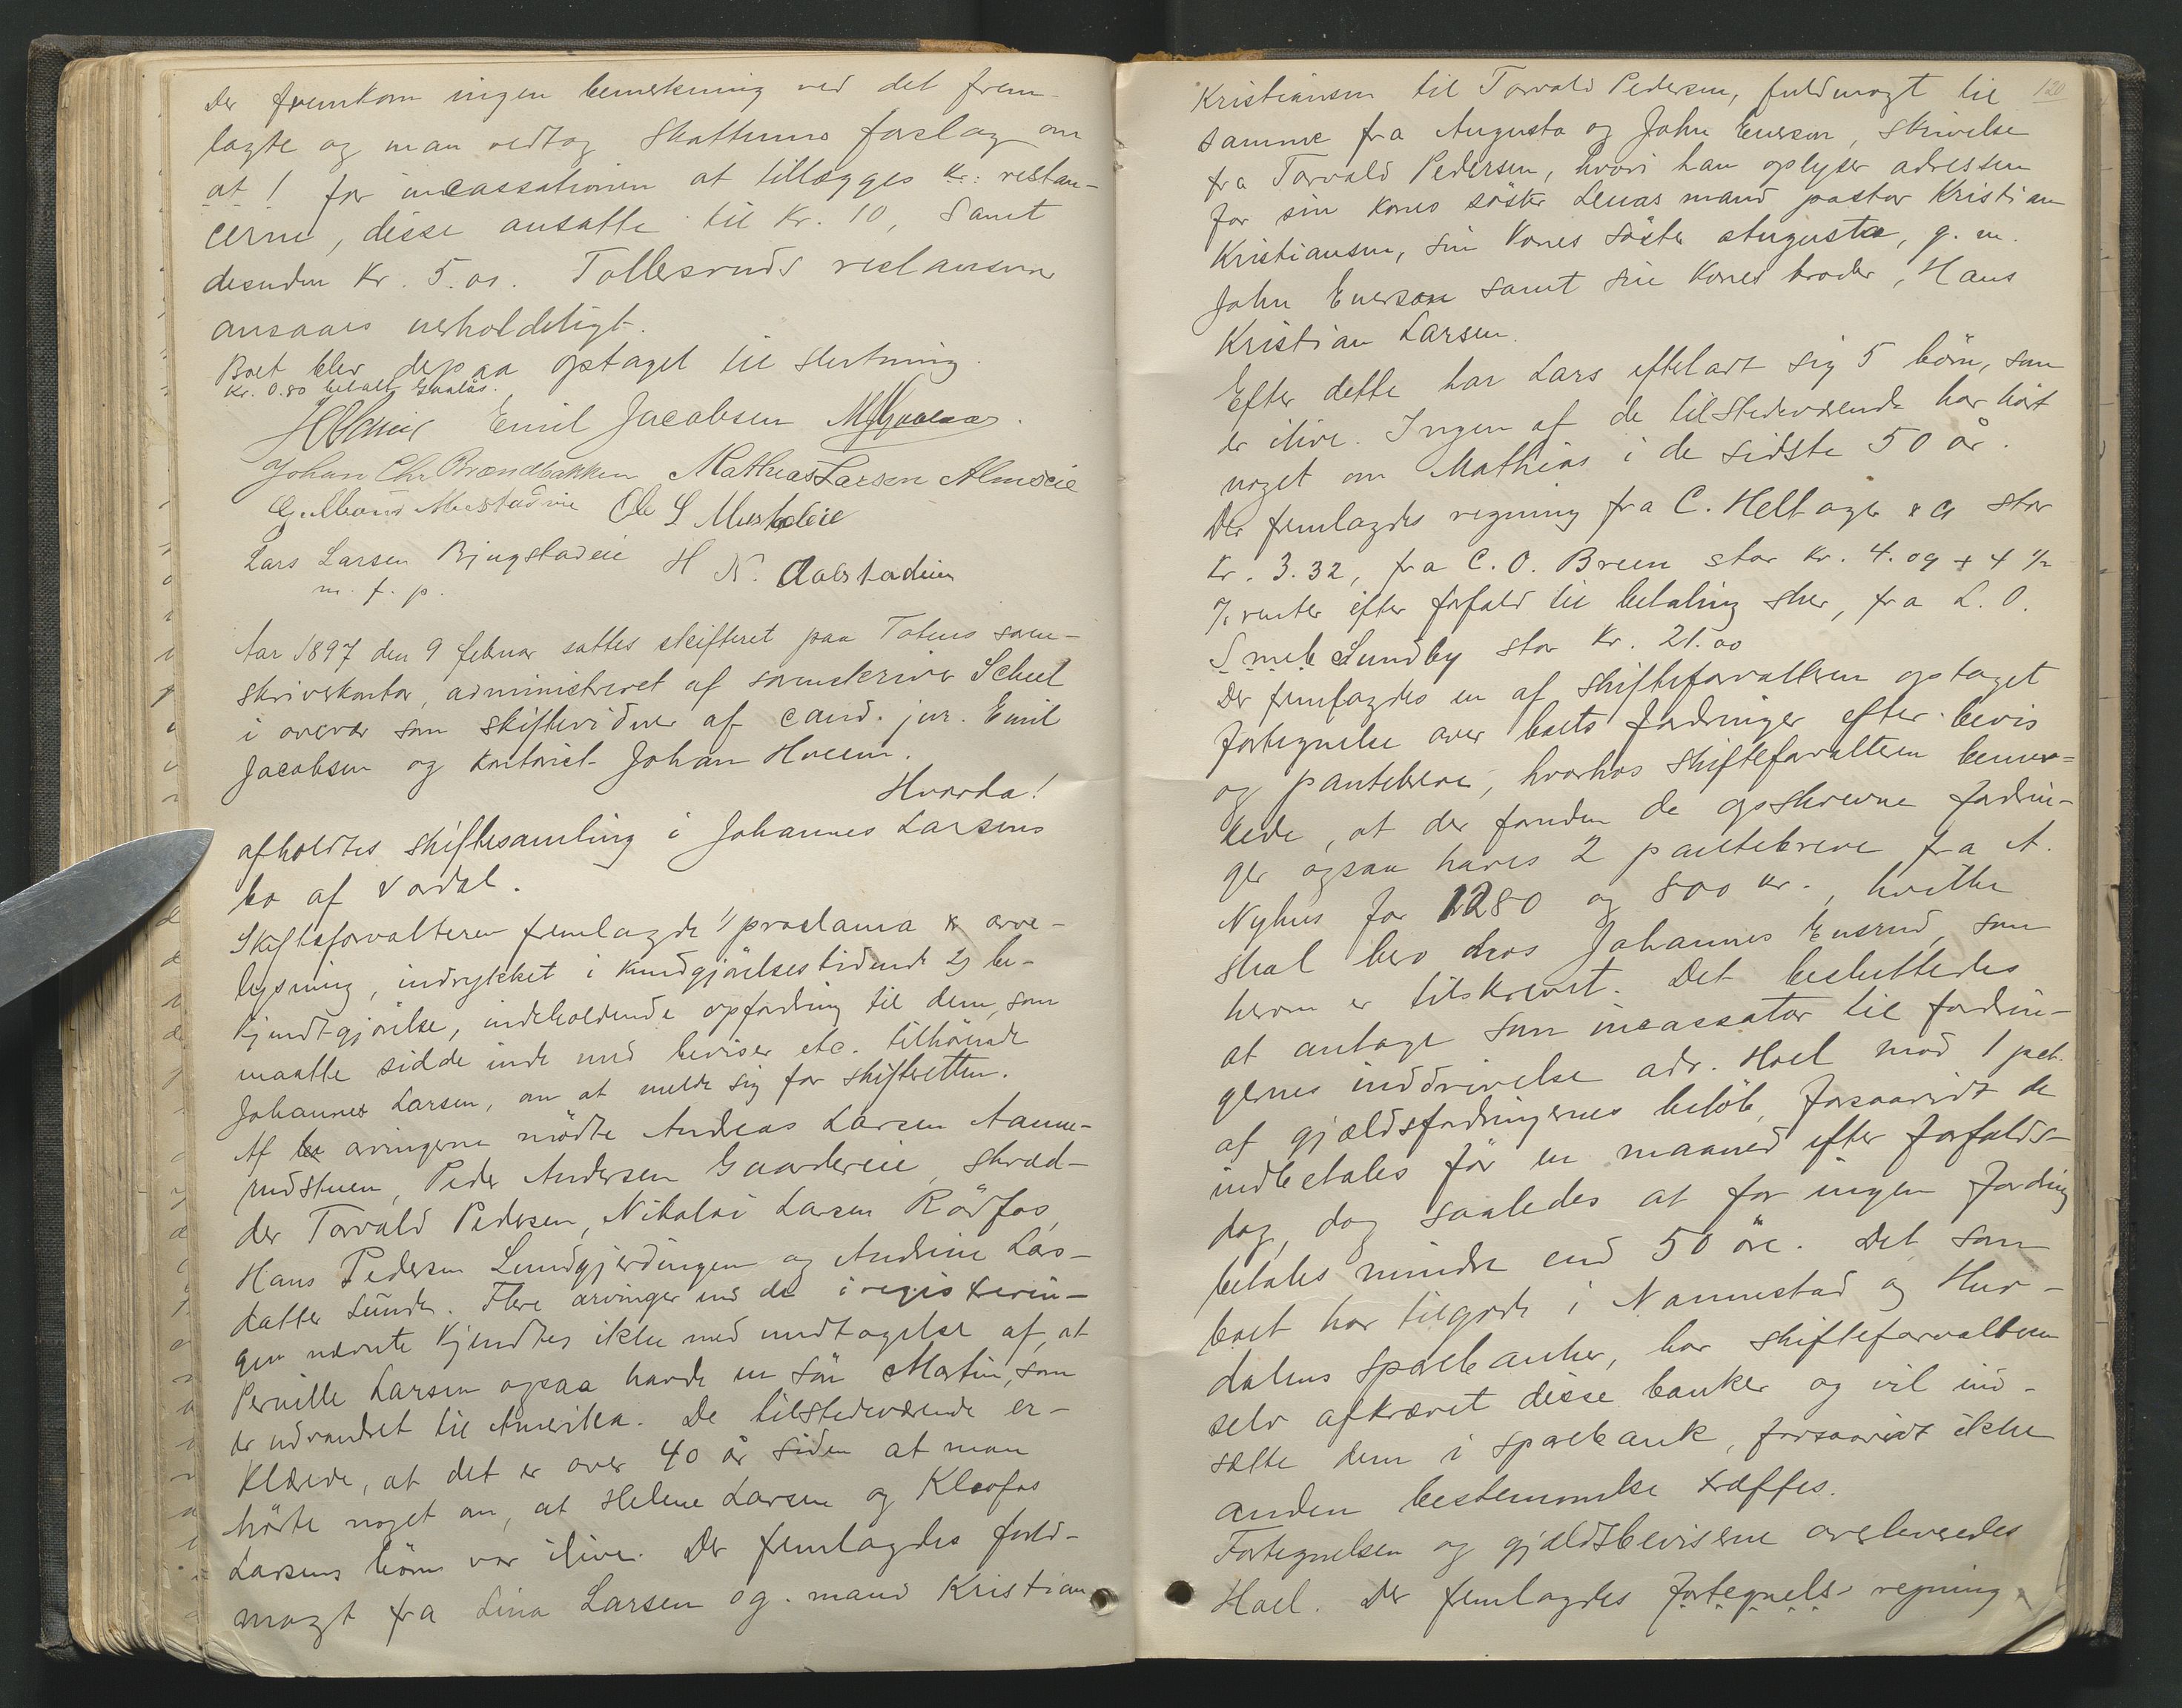 Der fremkom ingen bemerkning ved det frem-
lagte og man vedtog Skattums forslag om
at ! for incassationen at tillægges kr: restan-
cerne, disse ansatte til Kr. 10, samt
desuden Kr. 5.00. Tollersruds restanser
ansaaes uerholdeligt.
Boet blev derpaa optaget til slutning.
Kr. 0.80 betalt Gaalås.
Emil Jacobsen
Johan Chr Brændbakken Mathias Larsen Almseie
Ole L Mustadeie
Lars Larsen Bjugstadeie H N.
m. f. p.
Aar 1897 den 9 februar sattes skifteret paa Totens soren-
skriverkontor, administreret af sorenskriver Scheel
i overvær som skiftevidner af cand. jur. Emil
Jacobsen og kontorist Johan Hveem.
Hvorda!
afholdtes skiftesamling i Johannes Larsens
bo af Vardal.
Skifteforvalteren fremlagde 1/ proclama & arve-
lysning, indrykket i Kundgjörelsestidende 2/ be-
kjendtgjörelse, indeholdende opfordring til dem, som
maatte sidde inde med beviser etc. tilhörende
Johannes Larsen, om at melde sig for skifteretten.
Af arvingerne mödte Andreas Larsen Aanne-
rudstuen, Peder Andersen Gaardereie, skræd-
der Torvald Pedersen, Nikolai Larsen Rödfos,
Hans Pedersen Lundgjerdingen og Andrine Lars-
datter Sunde. Flere arvinger end de i registerin-
gen nævnte kjendtes ikke med undtagelse af, at
Pernille Larsen ogsaa havde en sön Martin, som
er udvandret til Amerika. De tilstedeværende er-
klærede, at det er over 40 år siden at man
hörte noget om, at Helene Larsen og Kleofas
Larsens börn var ilive. Der fremlagdes fuld-
magt fra Lina Larsen og mand Kristian
120
Kristiansen til Torvald Pedersen, fuldmagt til
samme fra Augusta og John Enerson, skrivelse
fra Torvald Pedersen, hvori han oplyser adressen
for sin kones söster Lenas mand pastor Kristian
Kristiansen, sin kones söster Augusta, g. m.
John Enerson samt sin kones broder, Hans
Kristian Larsen.
Efter dette har Lars efterladt sig 5 börn, som
er ilive. Ingen af de tilstedeværende har hört
noget om Mathias i de sidste 50 år.
Der fremlagdes regning fra C. Heltage & Co stor
Kr. 3.32, fra C. O. Breen stor Kr. 4.09 + 4 1/2
% renter efter forfald til betaling sker, fra L. O.
Smeb Lundby stor Kr. 21.00
Der fremlagdes en af skifteforvalteren optaget
fortegnelse over boets fordringer efter bevis
og pantebreve, hvorhos skifteforvalteren bemer-
kede, at der foruden de opskrevne fordrin-
ger ogsaa haves 2 pantebreve fra A.
Nyhus for 1280 og 800 kr., hvilke
skal bero hos Johannes Enerud, som
herom er tilskrevet. Det besluttedes
at antage som incassator til fordrin-
gernes inddrivelse adv. Hoel mod 1 pct.
af gjældsfordringernes belöb, forsaavidt de
indbetales för en maaned efter forfalds-
dag, dog saaledes at for ingen fordring
betales mindre end 50 öre. Det som
boet har tilgode i Nannestad og Hur-
dalens sparebanker, har skifteforvalteren
selv afkrævet disse banker og vil ind-
sætte dem i sparebank, forsaavidt ikke
anden bestemmelse træffes.
Fortegnelsen og gjældsbeviserne overleveredes
Hoel. Der fremlagdes fortegnels- regning